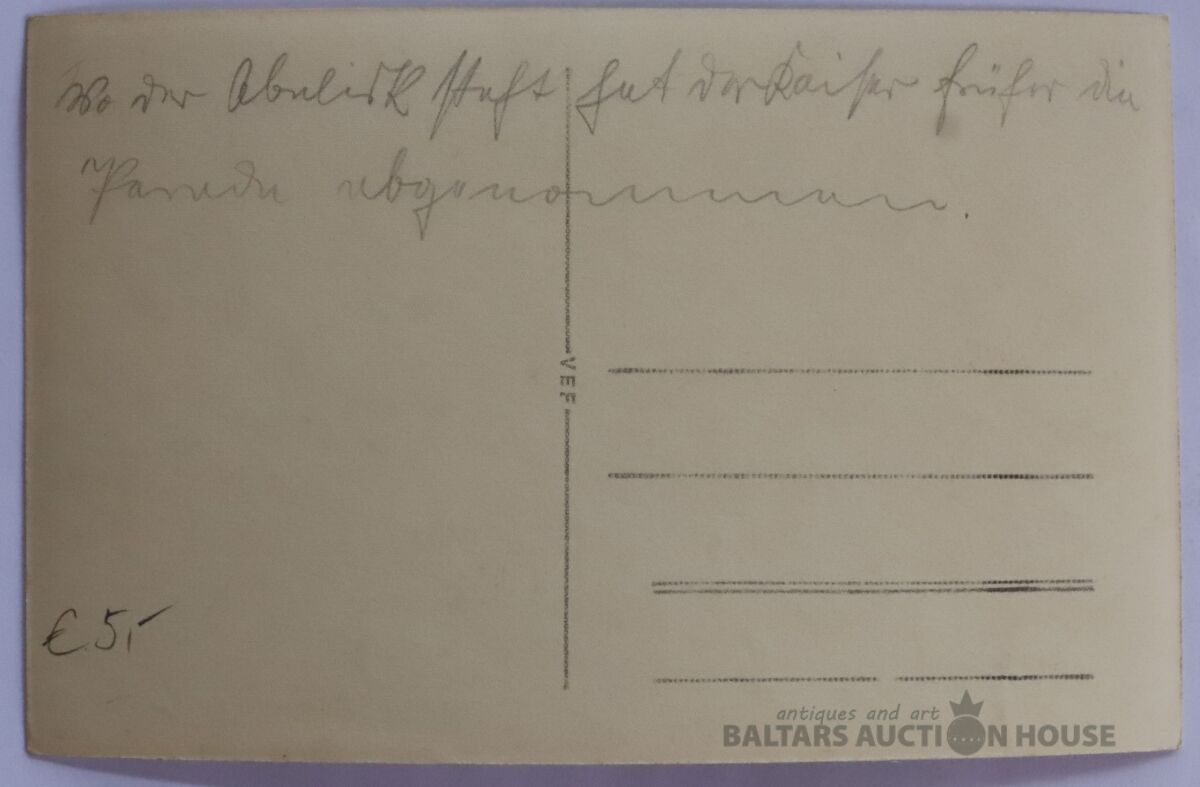 Wo der Abelisk steht hat der Kaiser früher die
Parade abgenommen.
VEF
€ 5,-
antiques and art
BALTARS AUCTION HOUSE